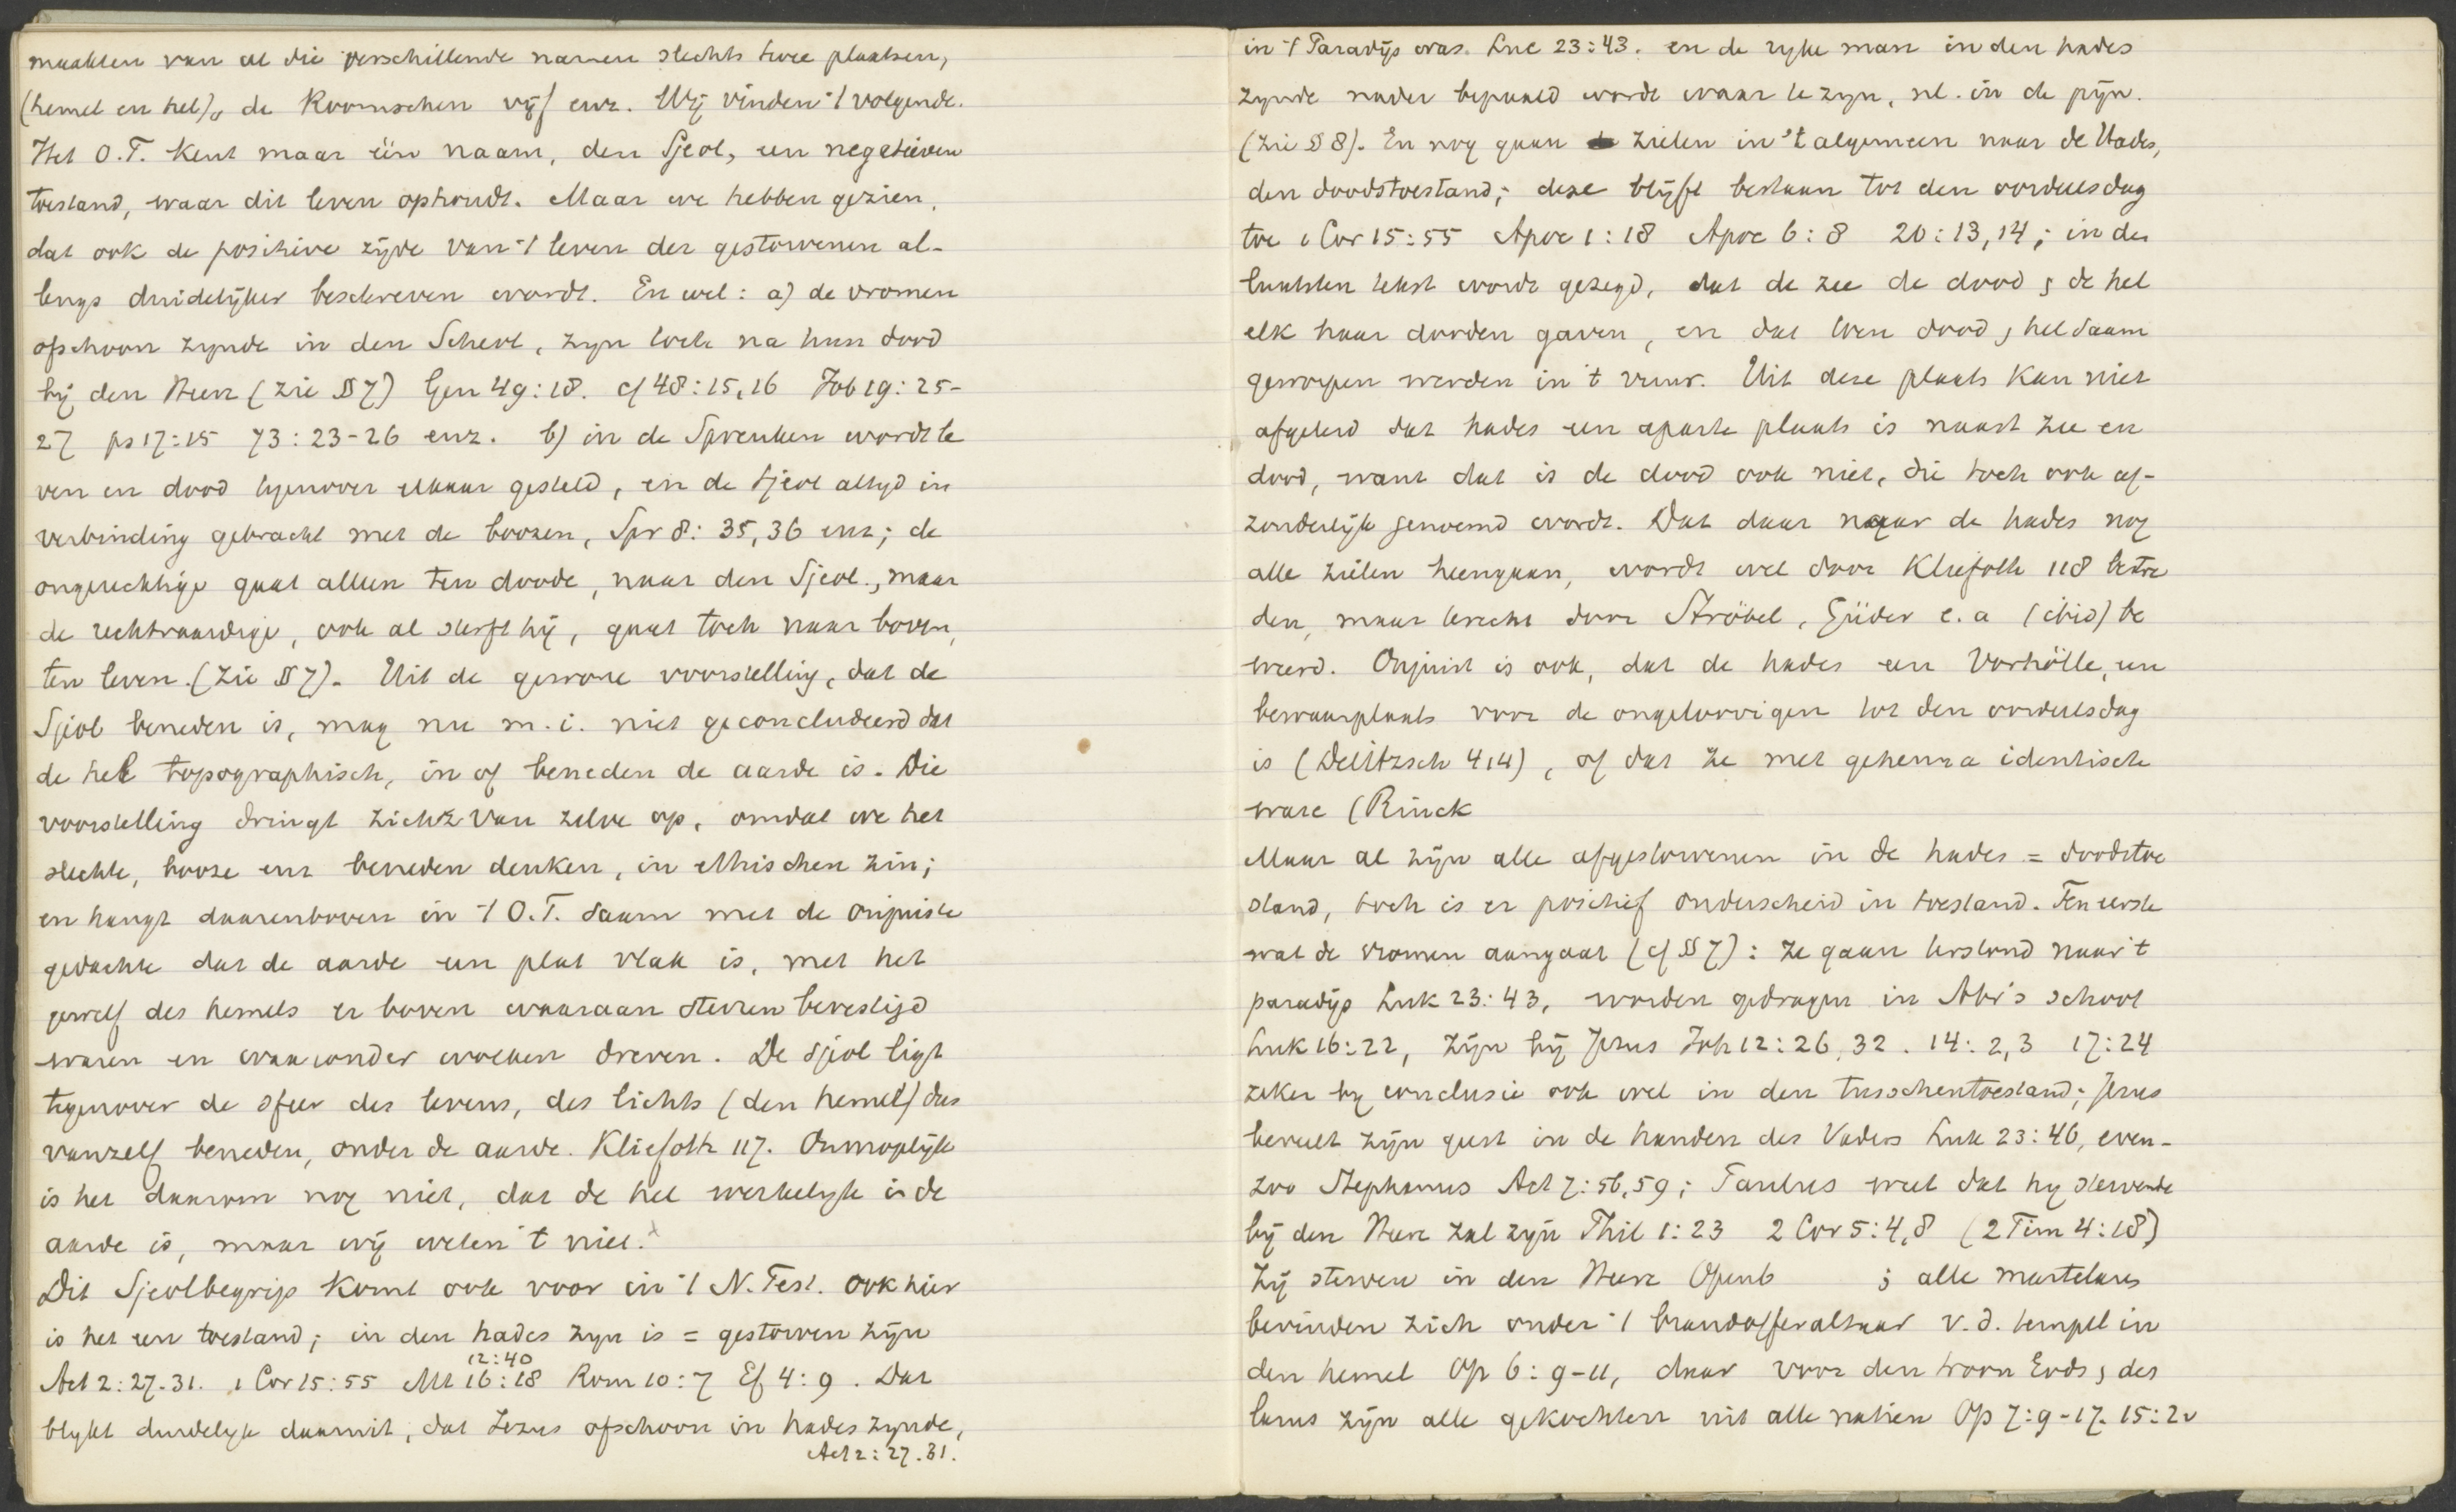 maakten van al die verschillende namen slechts twee plaatsen,
(hemel en hel), de Roomschen vijf enz. Wij vinden 't volgende.
Het O.T. kent maar één naam, den Sjeol, een negatieven
toestand, waar dit leven ophoudt. Maar we hebben gezien,
dat ook de positieve zijde van 't leven der gestorvenen al-
lengs duidelijker beschreven wordt. En wel: a) de vromen
ofschoon zynde in den Scheol, zyn toch na hun dood
bij den Heere (zie § 7) Gen 49:18. cf 48:15,16 Job 19:25-
27 ps 17:15 73:23-26 enz. b) in de Spreuken wordt le
ven en dood tegenover elkaar gesteld, en de Sjeol altyd in
verbinding gebracht met de boozen, Spr 8:35,36 enz; de
ongerechtige gaat alleen ten doode, naar den Sjeol, maar
de rechtvaardige, ook al sterft hij, gaat toch naar boven,
ten leven. (Zie § 7). Uit de gewone voorstelling, dat de
Sjeol beneden is, mag nu m.i. niet geconcludeerd dat
de hel topographisch, in of beneden de aarde is. Die
voorstelling dringt zich van zelve op, omdat we het
slechte, booze enz beneden denken, in ethischen zin;
en hangt daarenboven in 't O.T. saam met de onjuiste
gedachte dat de aarde een plat vlak is, met het
gewelf des hemels er boven waaraan sterren bevestigd
waren en waaronder wolken dreven. De Sjeol ligt
tegenover de sfeer des levens, des lichts (den hemel) dus
vanzelf beneden, onder de aarde. Kliefoth 117. Onmogelijk
is het daarom nog niet, dat de hel werkelyk in de
aarde is, maar wij weten 't niet.
Dit Sjeolbegrip komt ook voor in 't N. Test. Ook hier
is het een toestand; in den hades zyn is = gestorven zijn
12:40
Act 2:27.31. 1 Cor 15:55 Mt 16:18 Rom 10:7 Ef 4:9. Dat
blykt duidelyk daaruit, dat Jezus ofschoon in hades zynde,
Act 2:27.31.
in 't Paradijs was. Luc 23:43. en de ryke man in den hades
zynde nader bepaald wordt waar te zyn, nl. in de pijn.
(zie § 8). En nog gaan zielen in 't algemeen naar de Hades,
den doodstoestand; deze blijft bestaan tot den oordeelsdag
toe 1 Cor 15:55 Apoc 1:18 Apoc 6:8 20:13,14; in den
laatsten tekst wordt gezegd, dat de zee de dood & de hel
elk haar dooden gaven, en dat toen dood & hel saam
geworpen werden in 't vuur. Uit deze plaats kan niet
afgeleid dat hades een aparte plaats is naast zee en
dood, want dat is de dood ook niet, die toch ook af-
zonderlijk genoemd wordt. Dat daar naar de hades nog
alle zielen heengaan, wordt wel door Kliefoth 118 bestre
den, maar terecht door Ströbel, Güder e.a (ibid) be
weerd. Onjuist is ook, dat de hades een Vorhölle, een
bewaarplaats voor de ongeloovigen tot den oordeelsdag
is (Delitzsch 414), of dat ze met gehenna identisch
ware (Rinck
Maar al zijn alle afgestorvenen in de hades = doodstoe
stand, toch is er positief onderscheid in toestand. Ten eerste
wat de vromen aangaat (cf § 7): ze gaan terstond naar 't
paradijs Luk 23:43, worden gedragen in Abr's schoot
Luk 16:22, zijn bij Jezus Joh 12:26,32. 14:2,3 17:24
zeker by conclusie ook wel in den tusschentoestand; Jezus
beveelt zijn geest in de handen des Vaders Luk 23:46, even-
zoo Stephanus Act 7:56,59; Paulus weet dat hy stervende
bij den Heere zal zijn Phil 1:23 2 Cor 5:4,8 (2 Tim 4:18)
Zij sterven in den Heere Openb ; alle martelaars
bevinden zich onder 't brandofferaltaar v.d. tempel in
den hemel Op 6:9-11, daar voor den troon Gods & des
lams zijn alle gekochten uit alle natiën Op 7:9-17. 15:2v